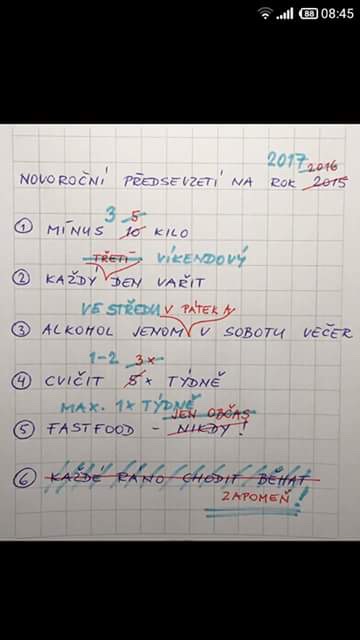 88 08:45
2017 2016
NOVOROČNÍ PŘEDSEVZETÍ NA ROK 2015
3 5
① MÍNUS 10 KILO
TŘETÍ VÍKENDOVÝ
② KAŽDÝ DEN VAŘIT
VE STŘEDU V PÁTEK A
③ ALKOHOL JENOM V SOBOTU VEČER
1-2 3x
④ CVIČIT 5x TÝDNĚ
MAX. 1x TÝDNĚ
JEN OBČAS
⑤ FASTFOOD - NIKDY!
⑥ KAŽDÉ RÁNO CHODIT BĚHAT
ZAPOMEŇ!